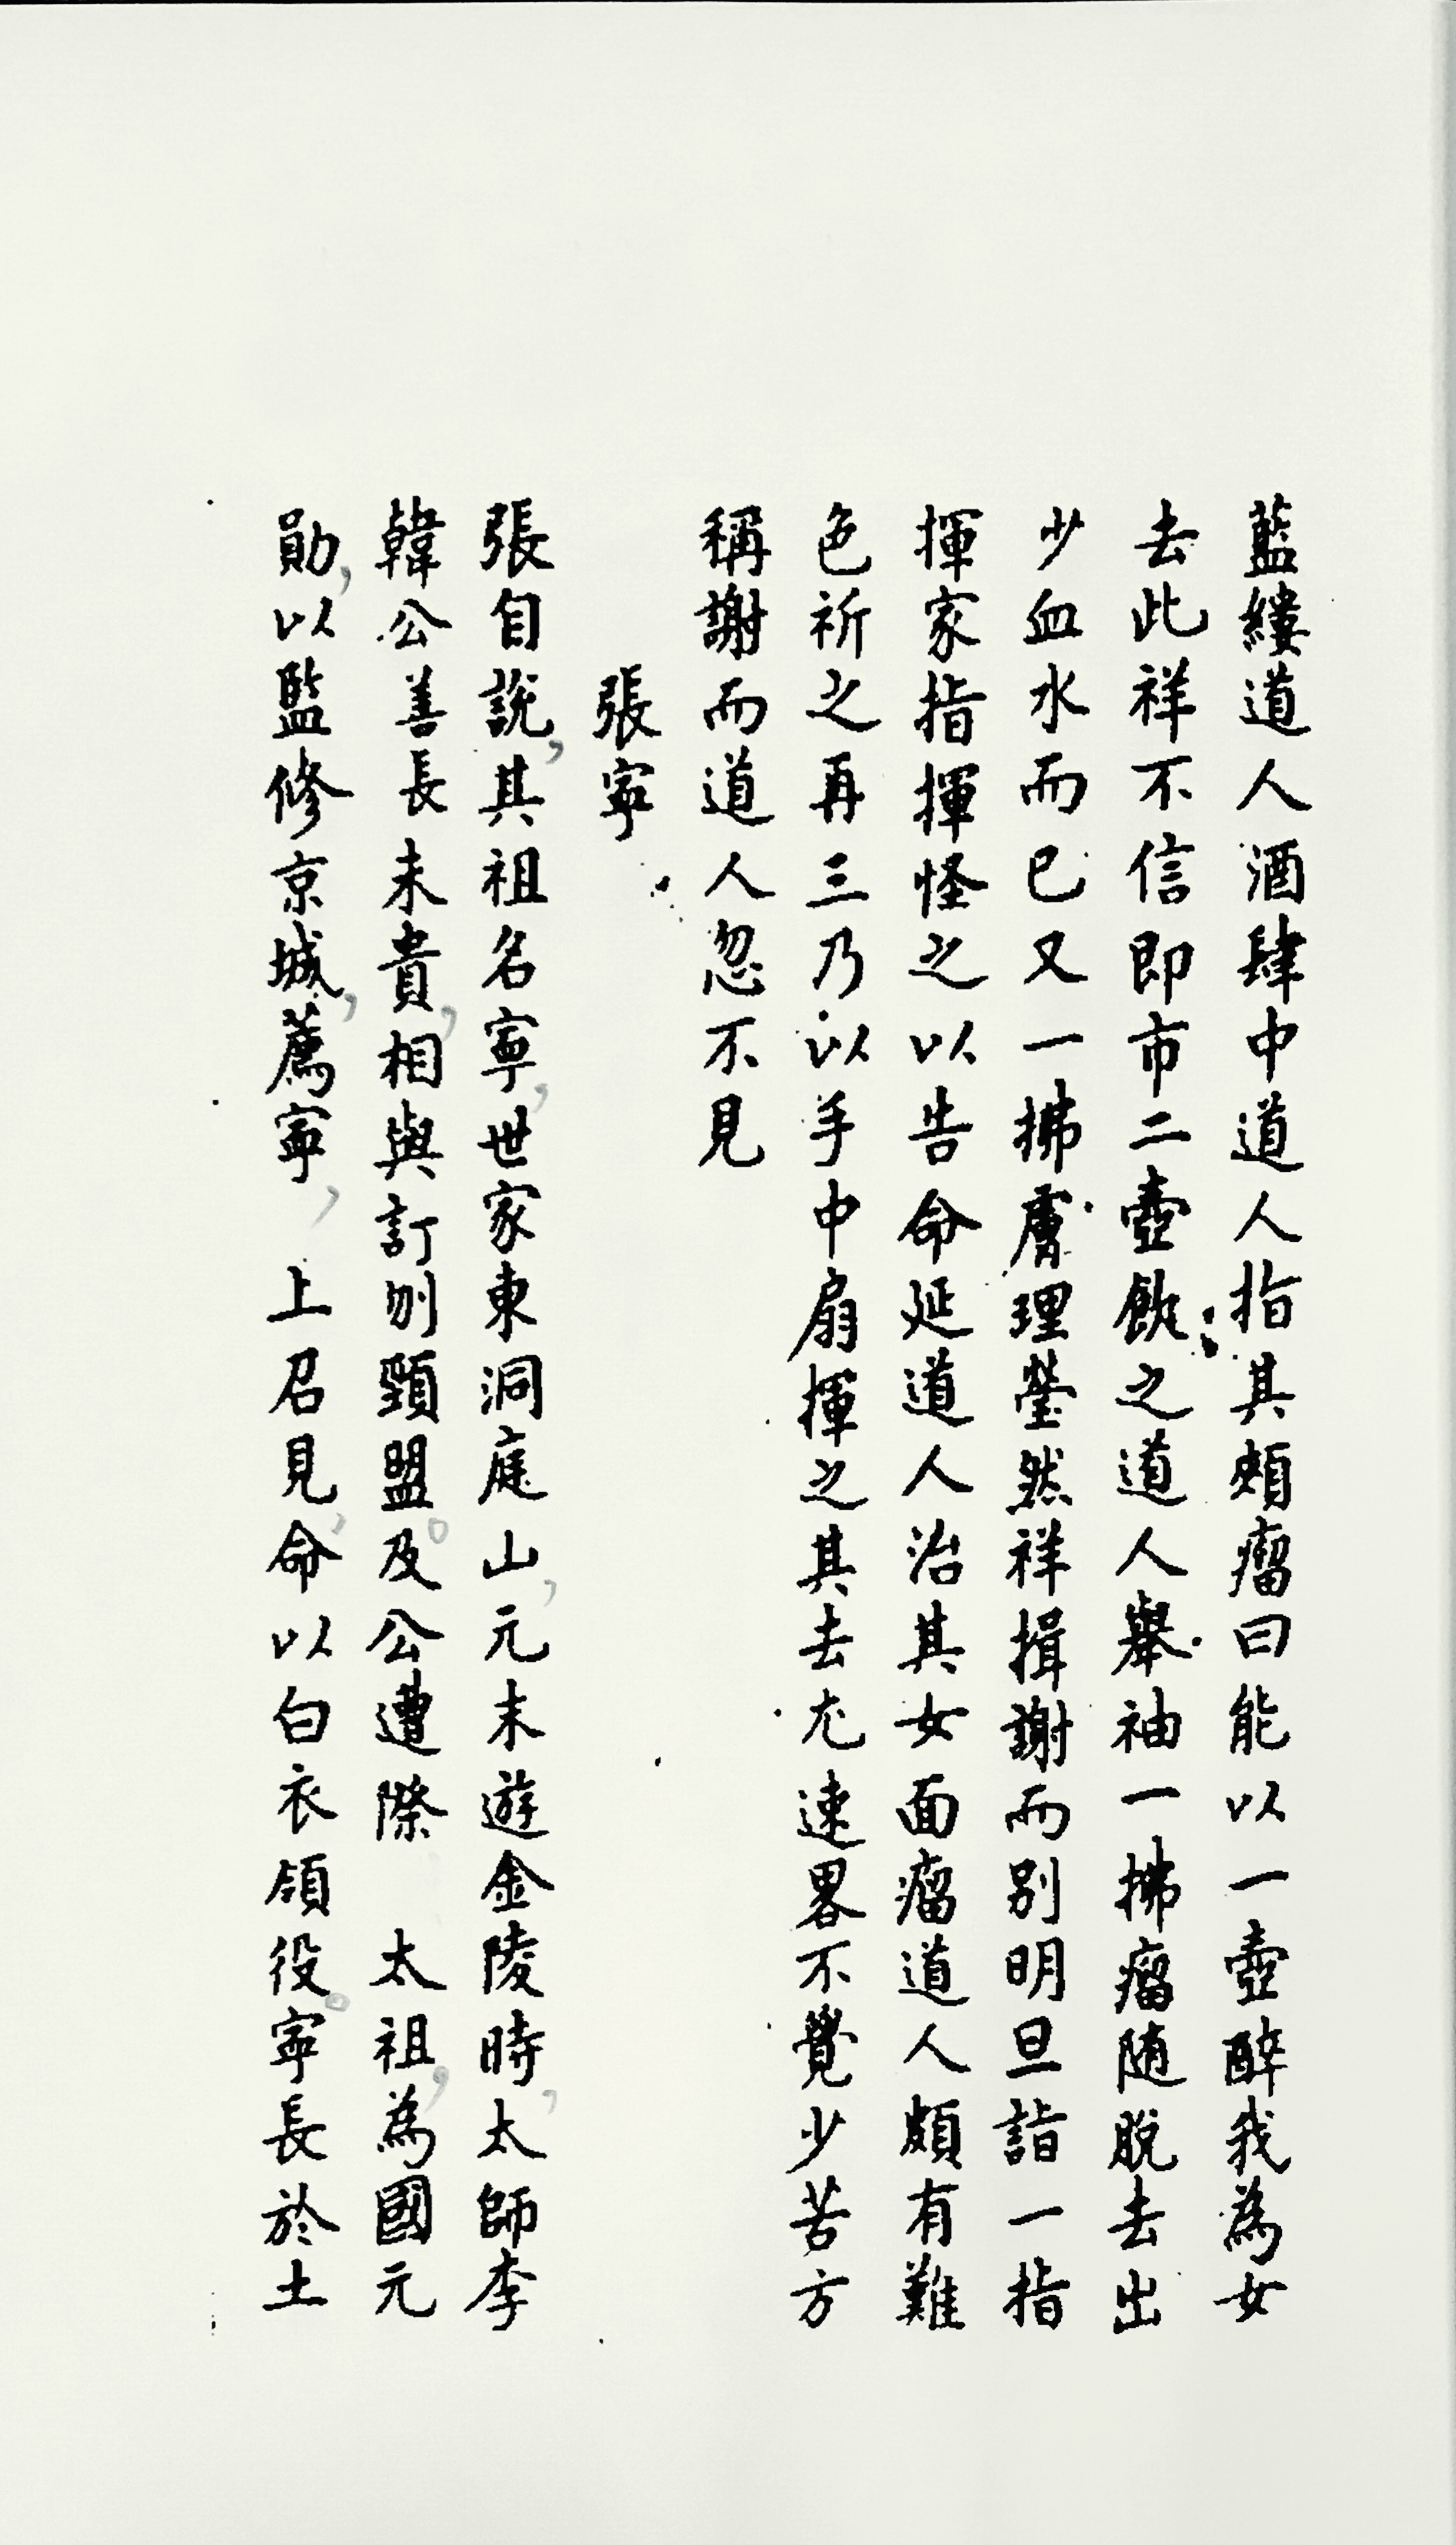 藍縷道人酒肆中道人指其頰瘤曰能以一壺醉我為女
去此祥不信即市二壺飲之道人舉袖一拂瘤随脫去出
少血水而已又一拂膚理瑩然祥揖謝而别明旦詣一指
揮家指揮怪之以告命延道人治其女面瘤道人頗有難
色祈之再三乃以手中扇揮之其去尤速畧不覺少苦方
稱謝而道人忽不見
張寧
張自説，其祖名寧，世家東洞庭山，元末遊金陵時，太師李
韓公善長未貴，相與訂刎頸盟。及公遭際　太祖，為國元
勛，以監修京城，薦寧，　上召見，命以白衣領役。寧長於土